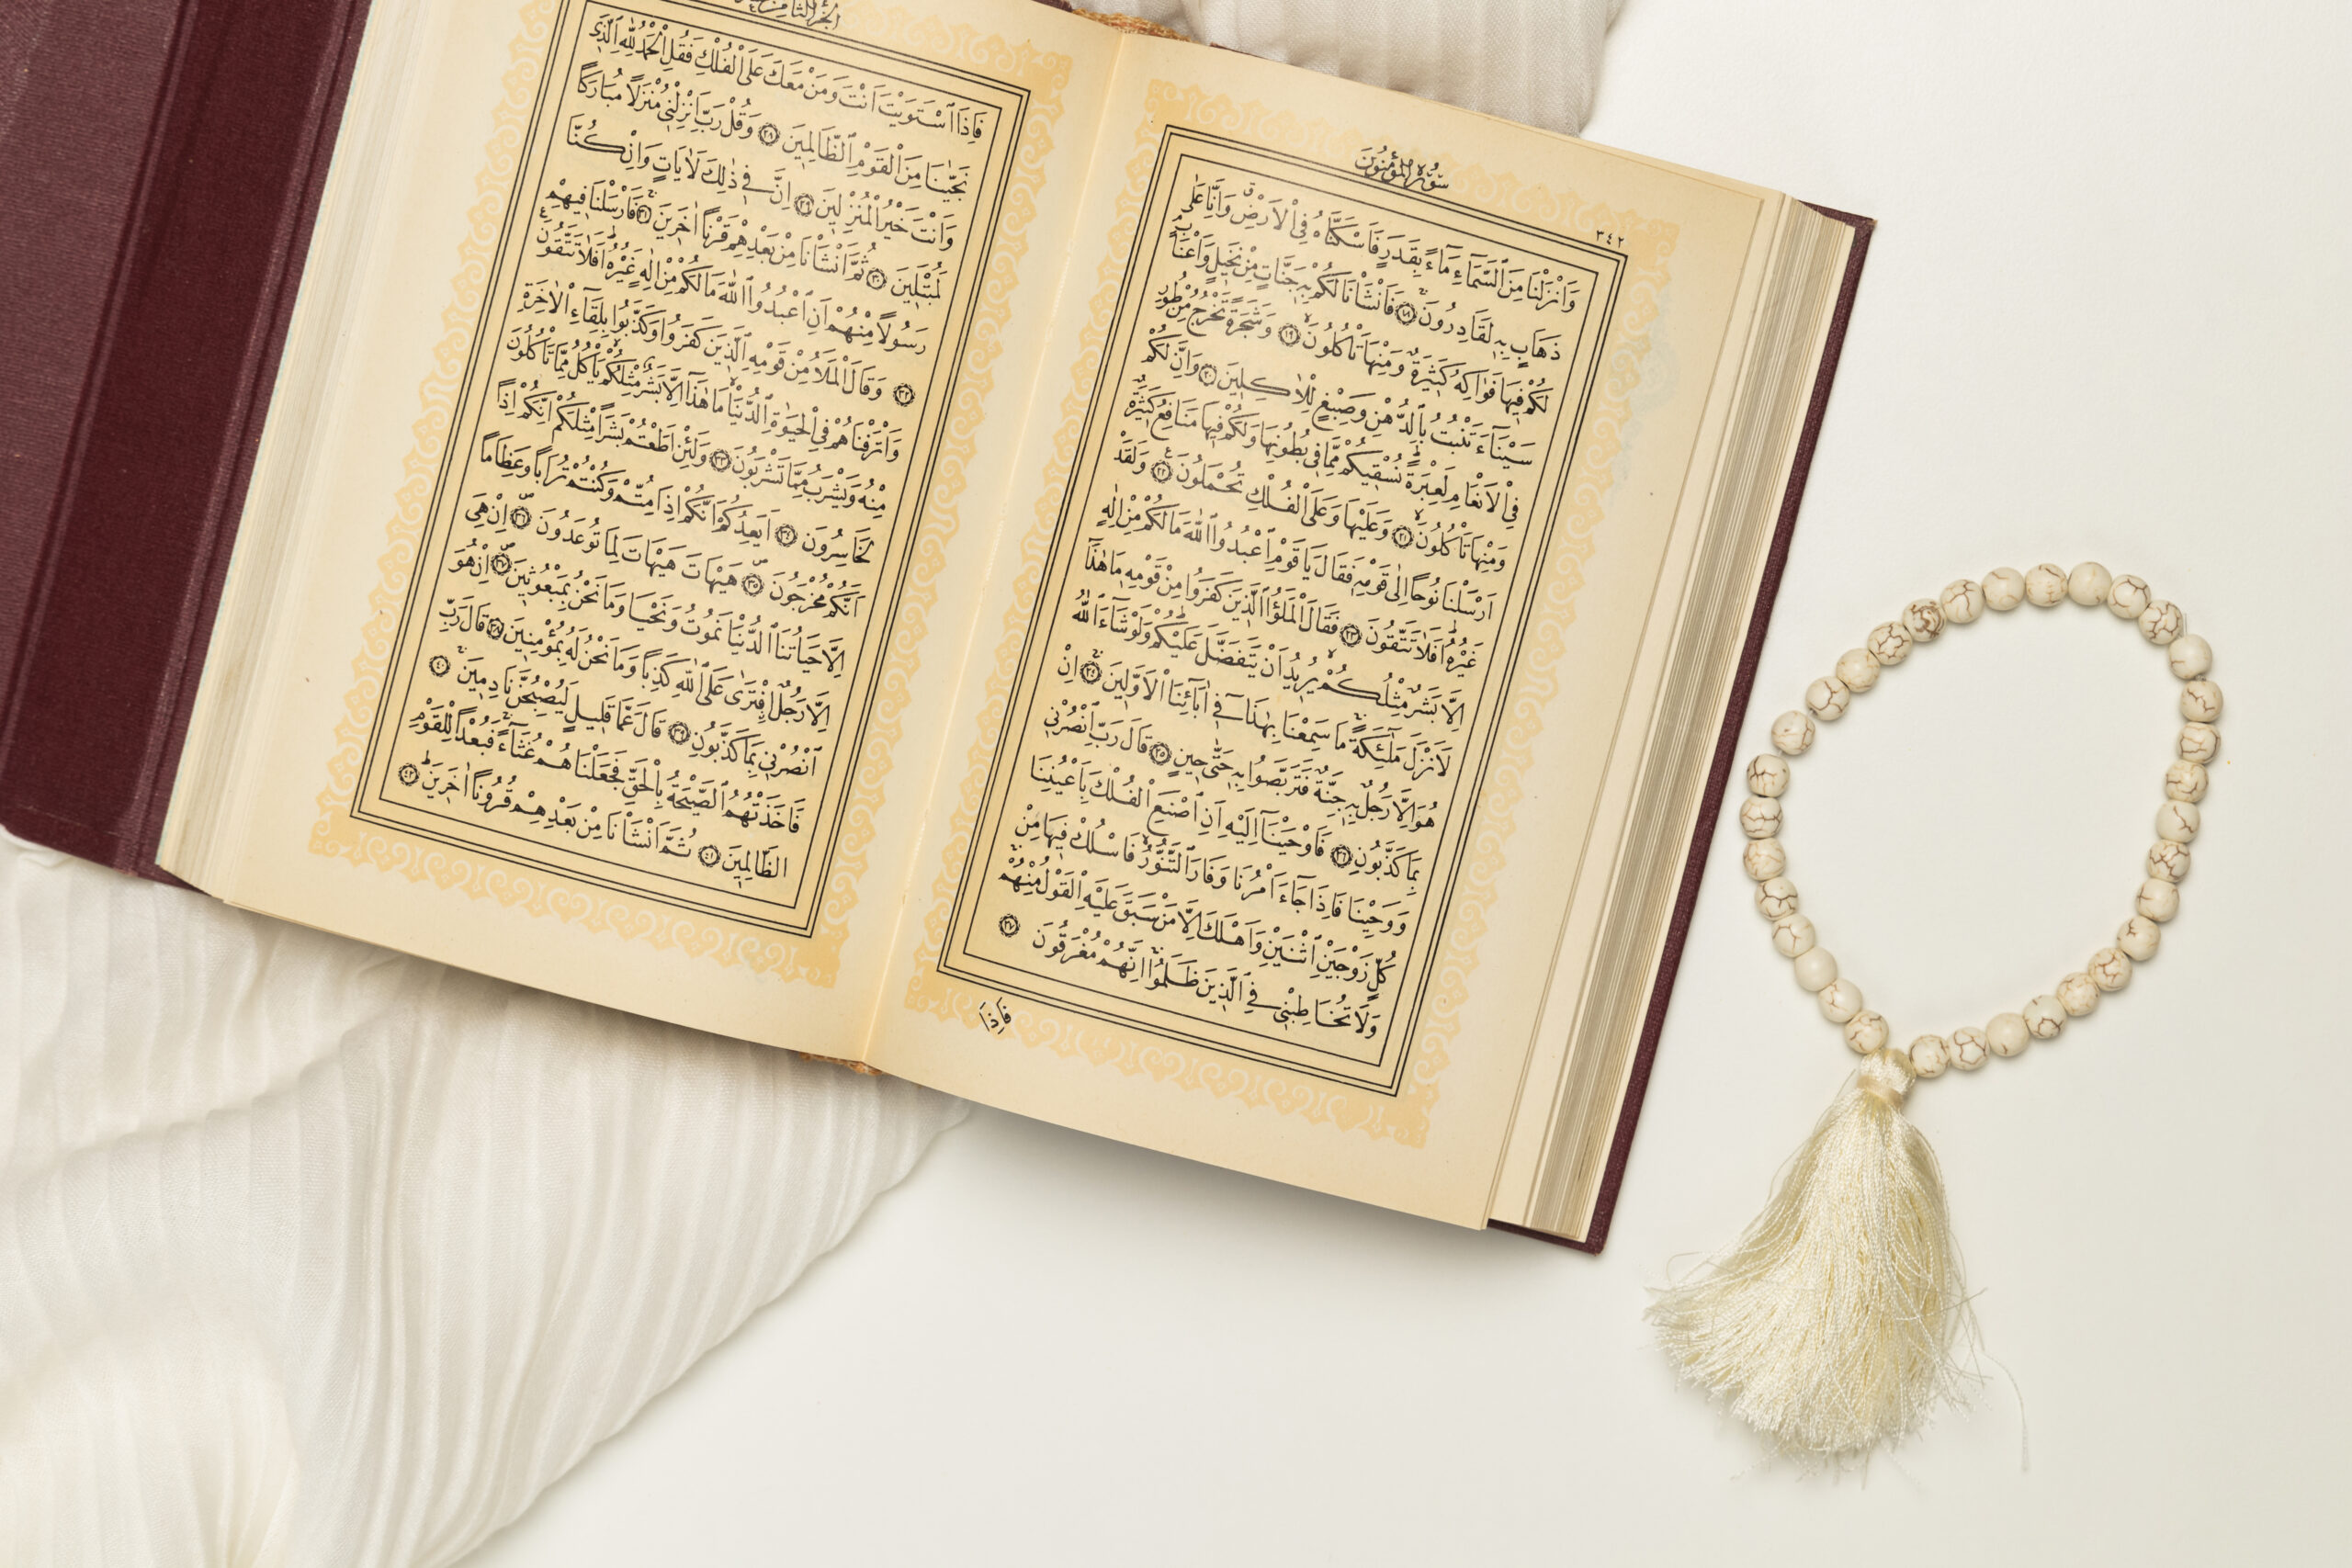 سُورَةُ الْمُؤْمِنُونَ
٣٤٢
وَاَنْزَلْنَا مِنَ السَّمَٓاءِ مَٓاءً بِقَدَرٍ فَاَسْكَنَّاهُ فِي الْاَرْضِۗ وَاِنَّا عَلٰى
ذَهَابٍ بِه۪ لَقَادِرُونَۚ ﴿١٨﴾ فَاَنْشَأْنَا لَكُمْ بِه۪ جَنَّاتٍ مِنْ نَخ۪يلٍ وَاَعْنَابٍۢ
لَكُمْ ف۪يهَا فَوَاكِهُ كَث۪يرَةٌ وَمِنْهَا تَأْكُلُونَۙ ﴿١٩﴾ وَشَجَرَةً تَخْرُجُ مِنْ طُورِ
سَيْنَٓاءَ تَنْبُتُ بِالدُّهْنِ وَصِبْغٍ لِلْاٰكِل۪ينَ ﴿٢٠﴾ وَاِنَّ لَكُمْ
فِي الْاَنْعَامِ لَعِبْرَةًۜ نُسْق۪يكُمْ مِمَّا ف۪ي بُطُونِهَا وَلَكُمْ ف۪يهَا مَنَافِعُ كَث۪يرَةٌ
وَمِنْهَا تَأْكُلُونَۙ ﴿٢١﴾ وَعَلَيْهَا وَعَلَى الْفُلْكِ تُحْمَلُونَ۟ ﴿٢٢﴾ وَلَقَدْ
اَرْسَلْنَا نُوحاً اِلٰى قَوْمِه۪ فَقَالَ يَا قَوْمِ اعْبُدُوا اللّٰهَ مَا لَكُمْ مِنْ اِلٰهٍ
غَيْرُهُۜ اَفَلَا تَتَّقُونَ ﴿٢٣﴾ فَقَالَ الْمَلَؤُا الَّذ۪ينَ كَفَرُوا مِنْ قَوْمِه۪ مَا هٰذَٓا
اِلَّا بَشَرٌ مِثْلُكُمْۙ يُر۪يدُ اَنْ يَتَفَضَّلَ عَلَيْكُمْۜ وَلَوْ شَٓاءَ اللّٰهُ
لَاَنْزَلَ مَلٰٓئِكَةًۚ مَا سَمِعْنَا بِهٰذَا ف۪ٓي اٰبَٓائِنَا الْاَوَّل۪ينَۚ ﴿٢٤﴾ اِنْ
هُوَ اِلَّا رَجُلٌ بِه۪ جِنَّةٌ فَتَرَبَّصُوا بِه۪ حَتّٰى ح۪ينٍ ﴿٢٥﴾ قَالَ رَبِّ انْصُرْن۪ي
بِمَا كَذَّبُونِ ﴿٢٦﴾ فَاَوْحَيْنَٓا اِلَيْهِ اَنِ اصْنَعِ الْفُلْكَ بِاَعْيُنِنَا
وَوَحْيِنَا فَاِذَا جَٓاءَ اَمْرُنَا وَفَارَ التَّنُّورُۙ فَاسْلُكْ ف۪يهَا مِنْ
كُلٍّ زَوْجَيْنِ اثْنَيْنِ وَاَهْلَكَ اِلَّا مَنْ سَبَقَ عَلَيْهِ الْقَوْلُ مِنْهُمْۚ
وَلَا تُخَاطِبْن۪ي فِي الَّذ۪ينَ ظَلَمُواۚ اِنَّهُمْ مُغْرَقُونَ ﴿٢٧﴾
فَاِذَا
فَاِذَا اسْتَوَيْتَ اَنْتَ وَمَنْ مَعَكَ عَلَى الْفُلْكِ فَقُلِ الْحَمْدُ لِلّٰهِ الَّذ۪ي
نَجّٰينَا مِنَ الْقَوْمِ الظَّالِم۪ينَ ﴿٢٨﴾ وَقُلْ رَبِّ اَنْزِلْن۪ي مُنْزَلاً مُبَارَكاً
وَاَنْتَ خَيْرُ الْمُنْزِل۪ينَ ﴿٢٩﴾ اِنَّ ف۪ي ذٰلِكَ لَاٰيَاتٍ وَاِنْ كُنَّا
لَمُبْتَل۪ينَ ﴿٣٠﴾ ثُمَّ اَنْشَأْنَا مِنْ بَعْدِهِمْ قَرْناً اٰخَر۪ينَۚ ﴿٣١﴾ فَاَرْسَلْنَا ف۪يهِمْ
رَسُولاً مِنْهُمْ اَنِ اعْبُدُوا اللّٰهَ مَا لَكُمْ مِنْ اِلٰهٍ غَيْرُهُۜ اَفَلَا تَتَّقُونَ۟
﴿٣٢﴾ وَقَالَ الْمَلَأُ مِنْ قَوْمِهِ الَّذ۪ينَ كَفَرُوا وَكَذَّبُوا بِلِقَٓاءِ الْاٰخِرَةِ
وَاَتْرَفْنَاهُمْ فِي الْحَيٰوةِ الدُّنْيَاۙ مَا هٰذَٓا اِلَّا بَشَرٌ مِثْلُكُمْۙ يَأْكُلُ مِمَّا تَأْكُلُونَ
مِنْهُ وَيَشْرَبُ مِمَّا تَشْرَبُونَ ﴿٣٣﴾ وَلَئِنْ اَطَعْتُمْ بَشَراً مِثْلَكُمْ اِنَّكُمْ اِذاً
لَخَاسِرُونَ ﴿٣٤﴾ اَيَعِدُكُمْ اَنَّكُمْ اِذَا مِتُّمْ وَكُنْتُمْ تُرَاباً وَعِظَاماً
اَنَّكُمْ مُخْرَجُونَ ﴿٣٥﴾ هَيْهَاتَ هَيْهَاتَ لِمَا تُوعَدُونَ ﴿٣٦﴾ اِنْ هِيَ
اِلَّا حَيَاتُنَا الدُّنْيَا نَمُوتُ وَنَحْيَا وَمَا نَحْنُ بِمَبْعُوث۪ينَ ﴿٣٧﴾ اِنْ هُوَ
اِلَّا رَجُلٌۨ افْتَرٰى عَلَى اللّٰهِ كَذِباً وَمَا نَحْنُ لَهُ بِمُؤْمِن۪ينَ ﴿٣٨﴾ قَالَ رَبِّ
انْصُرْن۪ي بِمَا كَذَّبُونِ ﴿٣٩﴾ قَالَ عَمَّا قَل۪يلٍ لَيُصْبِحُنَّ نَادِم۪ينَۚ ﴿٤٠﴾
فَاَخَذَتْهُمُ الصَّيْحَةُ بِالْحَقِّ فَجَعَلْنَاهُمْ غُثَٓاءًۚ فَبُعْداً لِلْقَوْمِ
الظَّالِم۪ينَ ﴿٤١﴾ ثُمَّ اَنْشَأْنَا مِنْ بَعْدِهِمْ قُرُوناً اٰخَر۪ينَۜ ﴿٤٢﴾